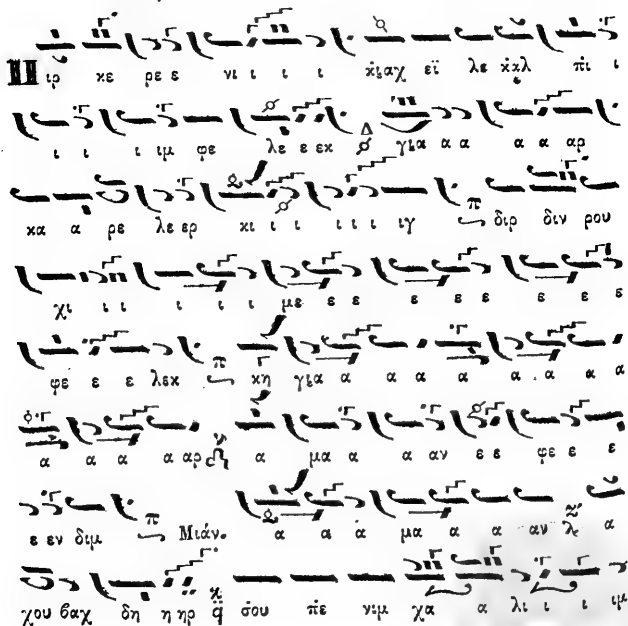 Πιρ κε ρε ε νι ι ι ι κ̇ι̯αχ εϊ λε κ̇κ̇λ π̇ι ι
ι ι ι ιμ φε λε ε εκ Δ γι̯α α α α α αρ
κα α ρε λε ερ κι ι ι ι ι ι ιγ π διρ διν ρου
χι ι ι ι ι ι με ε ε ε ε ε ε ε ε
φε ε ε λεκ π κη γι̯α α α α α α α α α
α α α α αρ α μα α α αν ε ε φε ε ε
ε εν διμ π Μιάν. α α α μα α α αν λ α
χου βαχ δη η ηρ κ q̈ σ̇ου π̇ε νιμ χα α λι ι ι ιμ